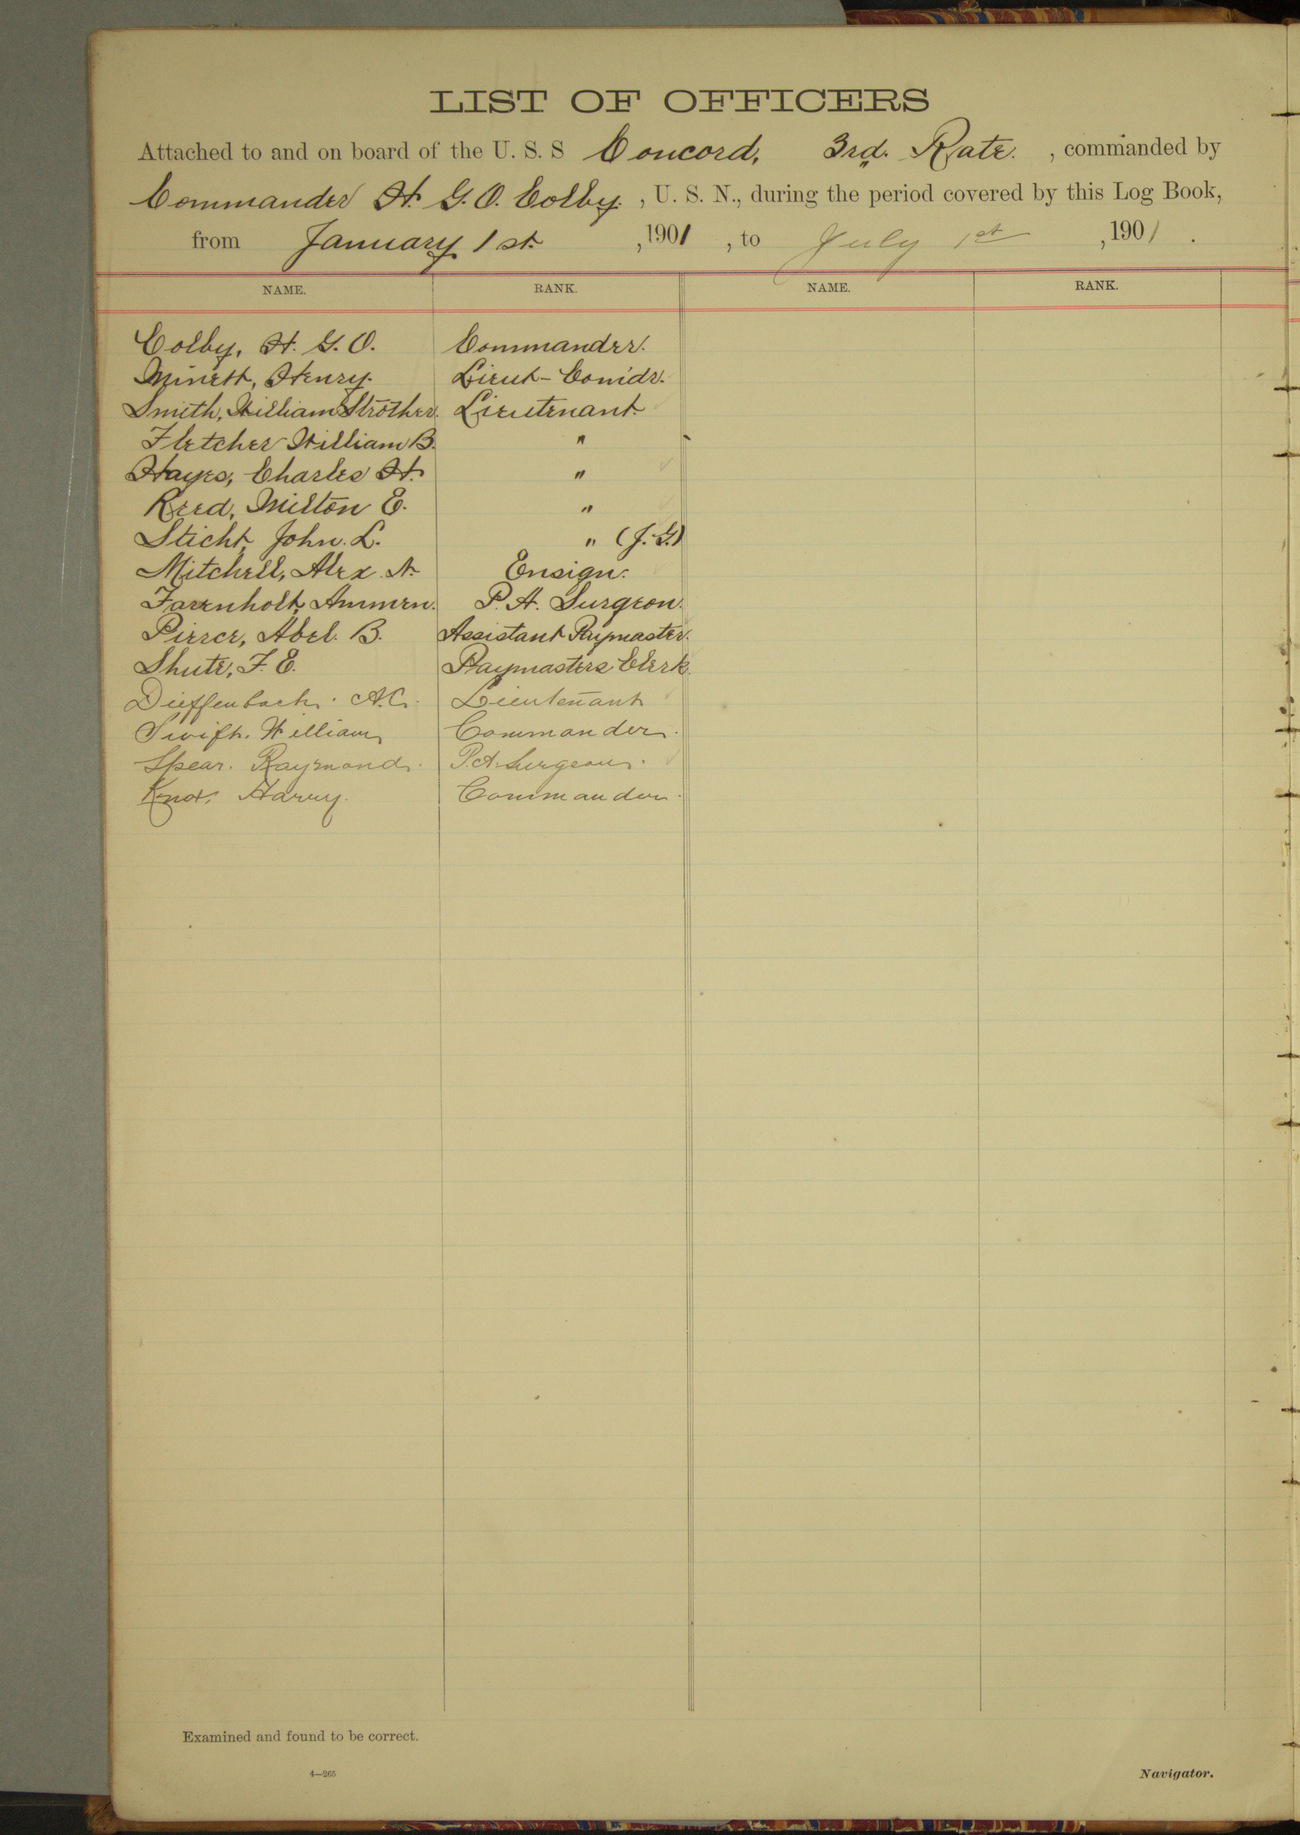 LIST OF OFFICERS
Attached to and on board of the U. S. S Concord, 3rd. Rate. , commanded by
Commander H. G. O. Colby. , U. S. N., during the period covered by this Log Book,
from January 1st. , 1901 , to July 1st , 1901 .
NAME. RANK. NAME. RANK.
Colby, H. G. O. Commander.
Minett, Henry. Lieut-Comdr.
Smith, William Strother. Lieutenant.
Fletcher William B. "
Hayes, Charles H. "
Reed, Milton E. "
Sticht, John. L. " (J.G)
Mitchell, Alex. N. Ensign.
Farenholt, Ammen. P. A. Surgeon.
Pierce, Abel. B. Assistant Paymaster.
Shute, F. E. Paymasters Clerk.
Dieffenbach. A.C. Lieutenant
Swift. William Commander.
Spear. Raymond. P.A. Surgeon.
Knox, Harry. Commander.
Examined and found to be correct.
4—265
Navigator.